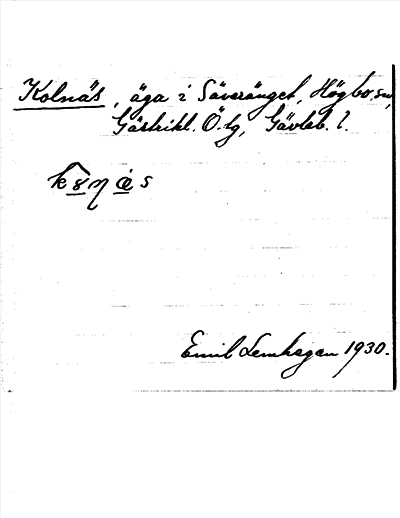 Kolnäs, äga i Säveränget, Högbo sn,
Gästrikl. Ö. tg, Gävleb. l.
Emil Lemhagen 1930.